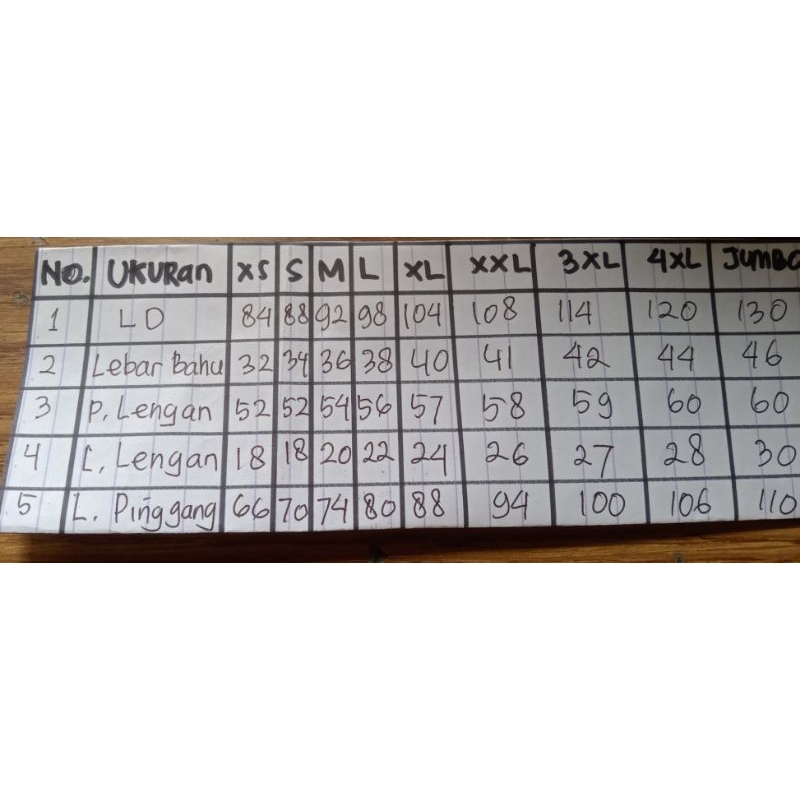 No. UKURan XS S M L XL XXL 3XL 4XL JUMBO
1 LD 84 88 92 98 104 108 114 120 130
2 Lebar Bahu 32 34 36 38 40 41 42 44 46
3 P. Lengan 52 52 54 56 57 58 59 60 60
4 L. Lengan 18 18 20 22 24 26 27 28 30
5 L. Pinggang 66 70 74 80 88 94 100 106 110